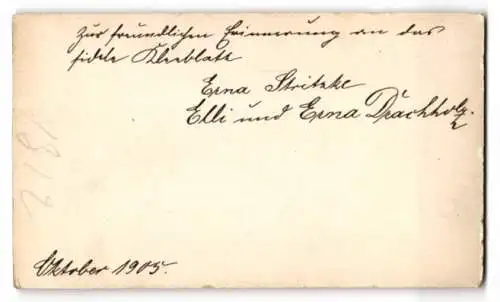 Zur freundlichen Erinnerung an das
fidele Kleeblatt
Erna Stritzke
Elli und Erna Drachholz.
Oktober 1905.